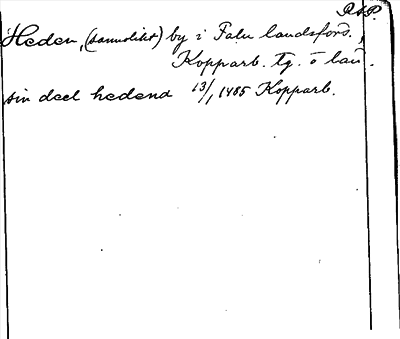 R.A.P.
Heden, (sannolikt) by i Falu landsförs.,
Kopparb. tg. o län.
sin deel hedend 13/1 1485 Kopparb.